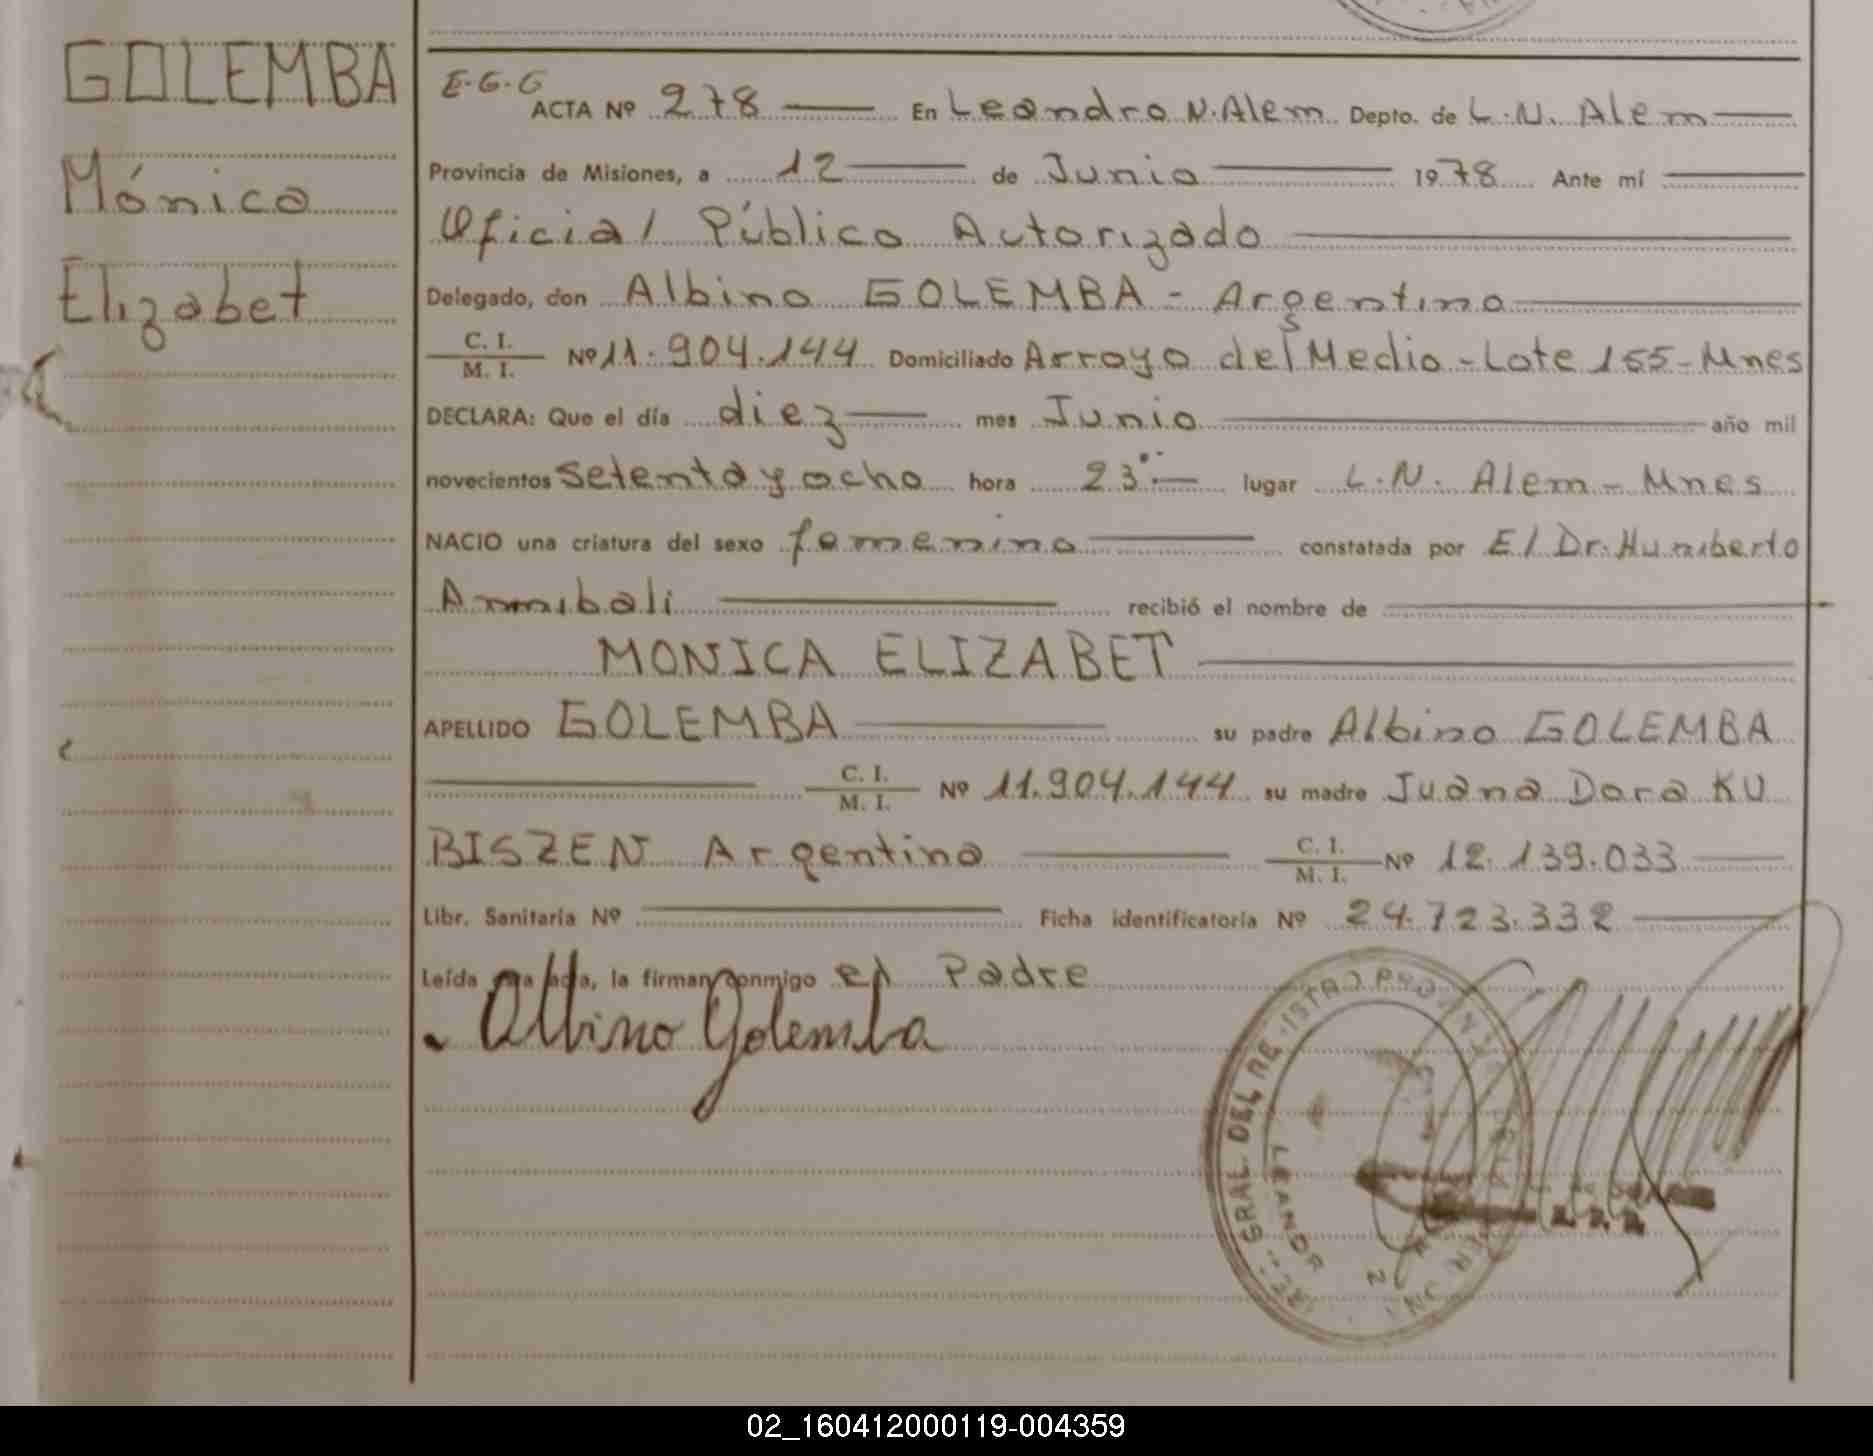 GOLEMBA
Mónica
Elizabet
E.G.G
ACTA Nº 278 En Leandro N. Alem Depto. de L.N. Alem
Provincia de Misiones, a 12 de Junio 1978 Ante mí
Oficial Público Autorizado
Delegado, don Albino GOLEMBA - Argentino
C. I. / M. I. Nº 11.904.144 Domiciliado Arroyo del Medio - Lote 155 - Mnes
DECLARA: Que el día diez mes Junio año mil
novecientos setenta y ocho hora 23 lugar L.N. Alem - Mnes
NACIO una criatura del sexo femenino constatada por El Dr. Humberto
Annibali recibió el nombre de
MONICA ELIZABET
APELLIDO GOLEMBA su padre Albino GOLEMBA
C. I. / M. I. Nº 11.904.144 su madre Juana Dora KU
BISZEN Argentina C. I. / M. I. Nº 12.139.033
Libr. Sanitaria Nº Ficha identificatoria Nº 24.723.332
Leída acta, la firman conmigo el Padre
Albino Golemba
GRAL. DEL REGISTRO PROVINCIAL
02_160412000119-004359